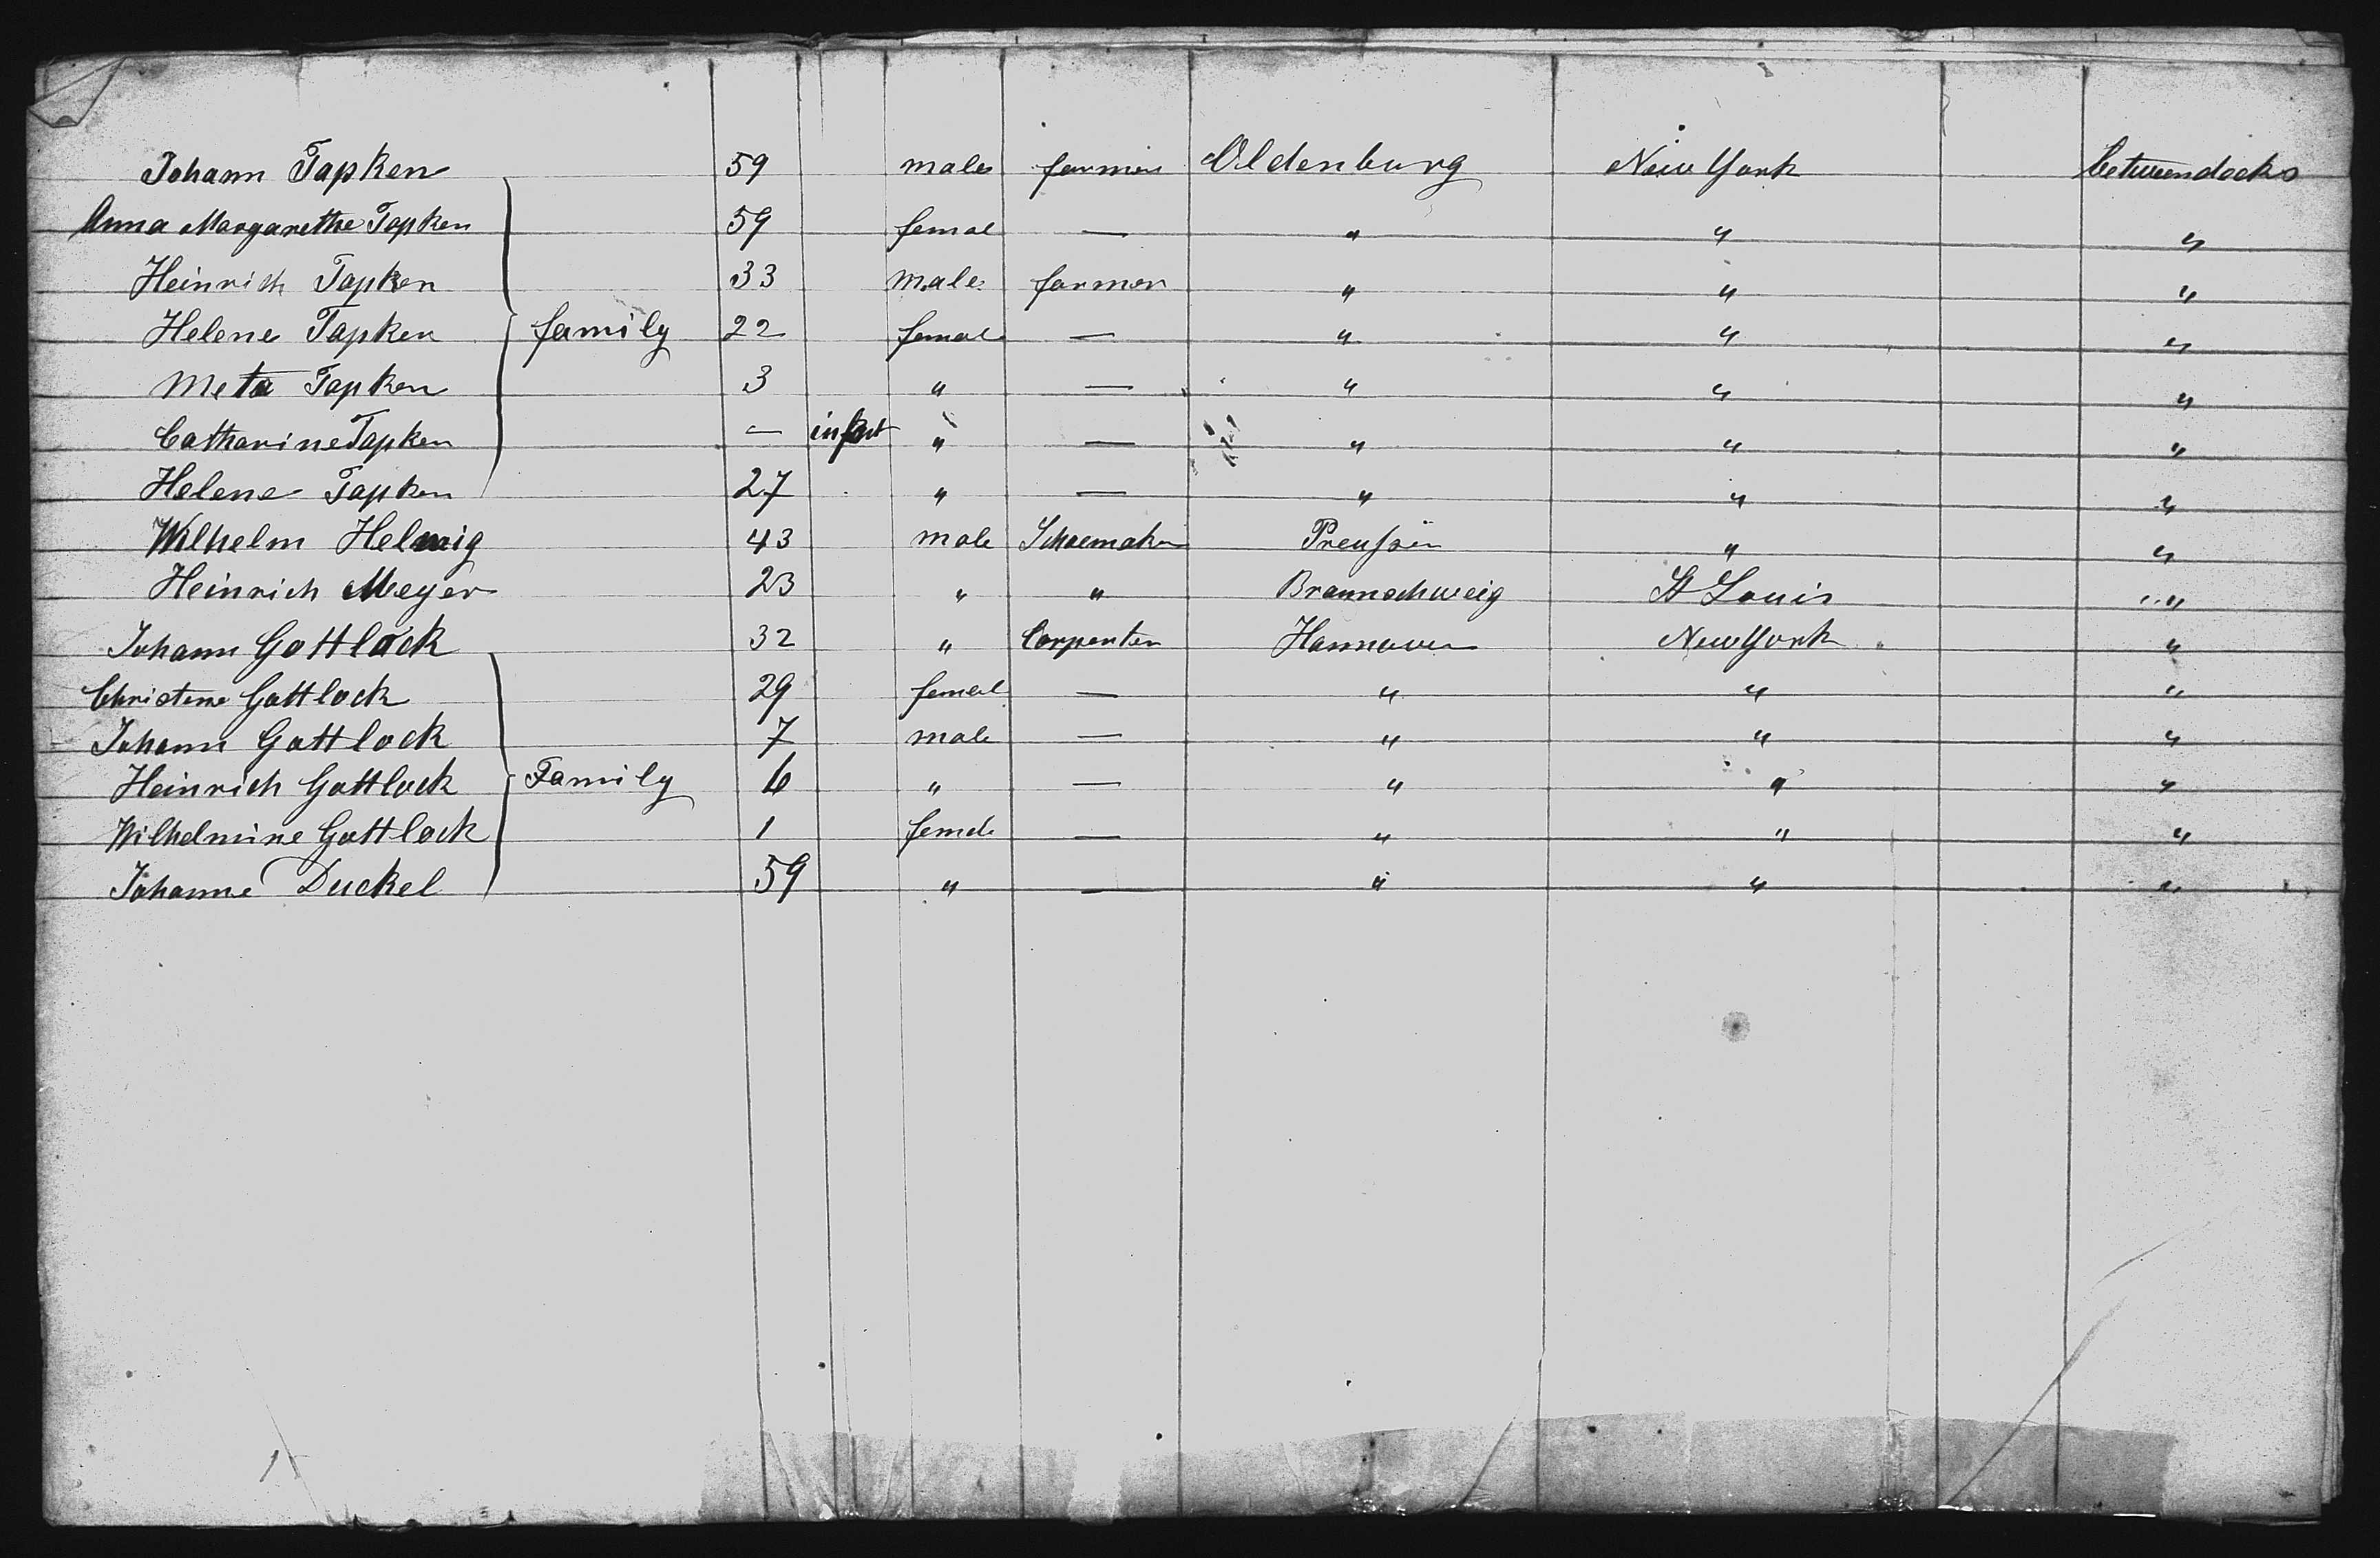 Johann Tapken 59 male farmer Oldenburg New York betweendecks
Anna Margarethe Tapken 59 femal — " " "
Heinrich Tapken 33 male farmer " " "
Helene Tapken family 22 femal — " " "
Meta Tapken 3 " — " " "
Catharine Tapken — infant " — " " "
Helene Tapken 27 " — " " "
Wilhelm Helwig 43 male Schoemaker Preußen " "
Heinrich Meyer 23 " " Braunschweig St Louis "
Johann Gottlock 32 " Carpenter Hannover New York "
Christine Gottlock 29 femal — " " "
Johann Gottlock 7 male — " " "
Heinrich Gottlock Family 6 " — " " "
Wilhelmine Gottlock 1 female — " " "
Johanne Duckel 59 " — " " "